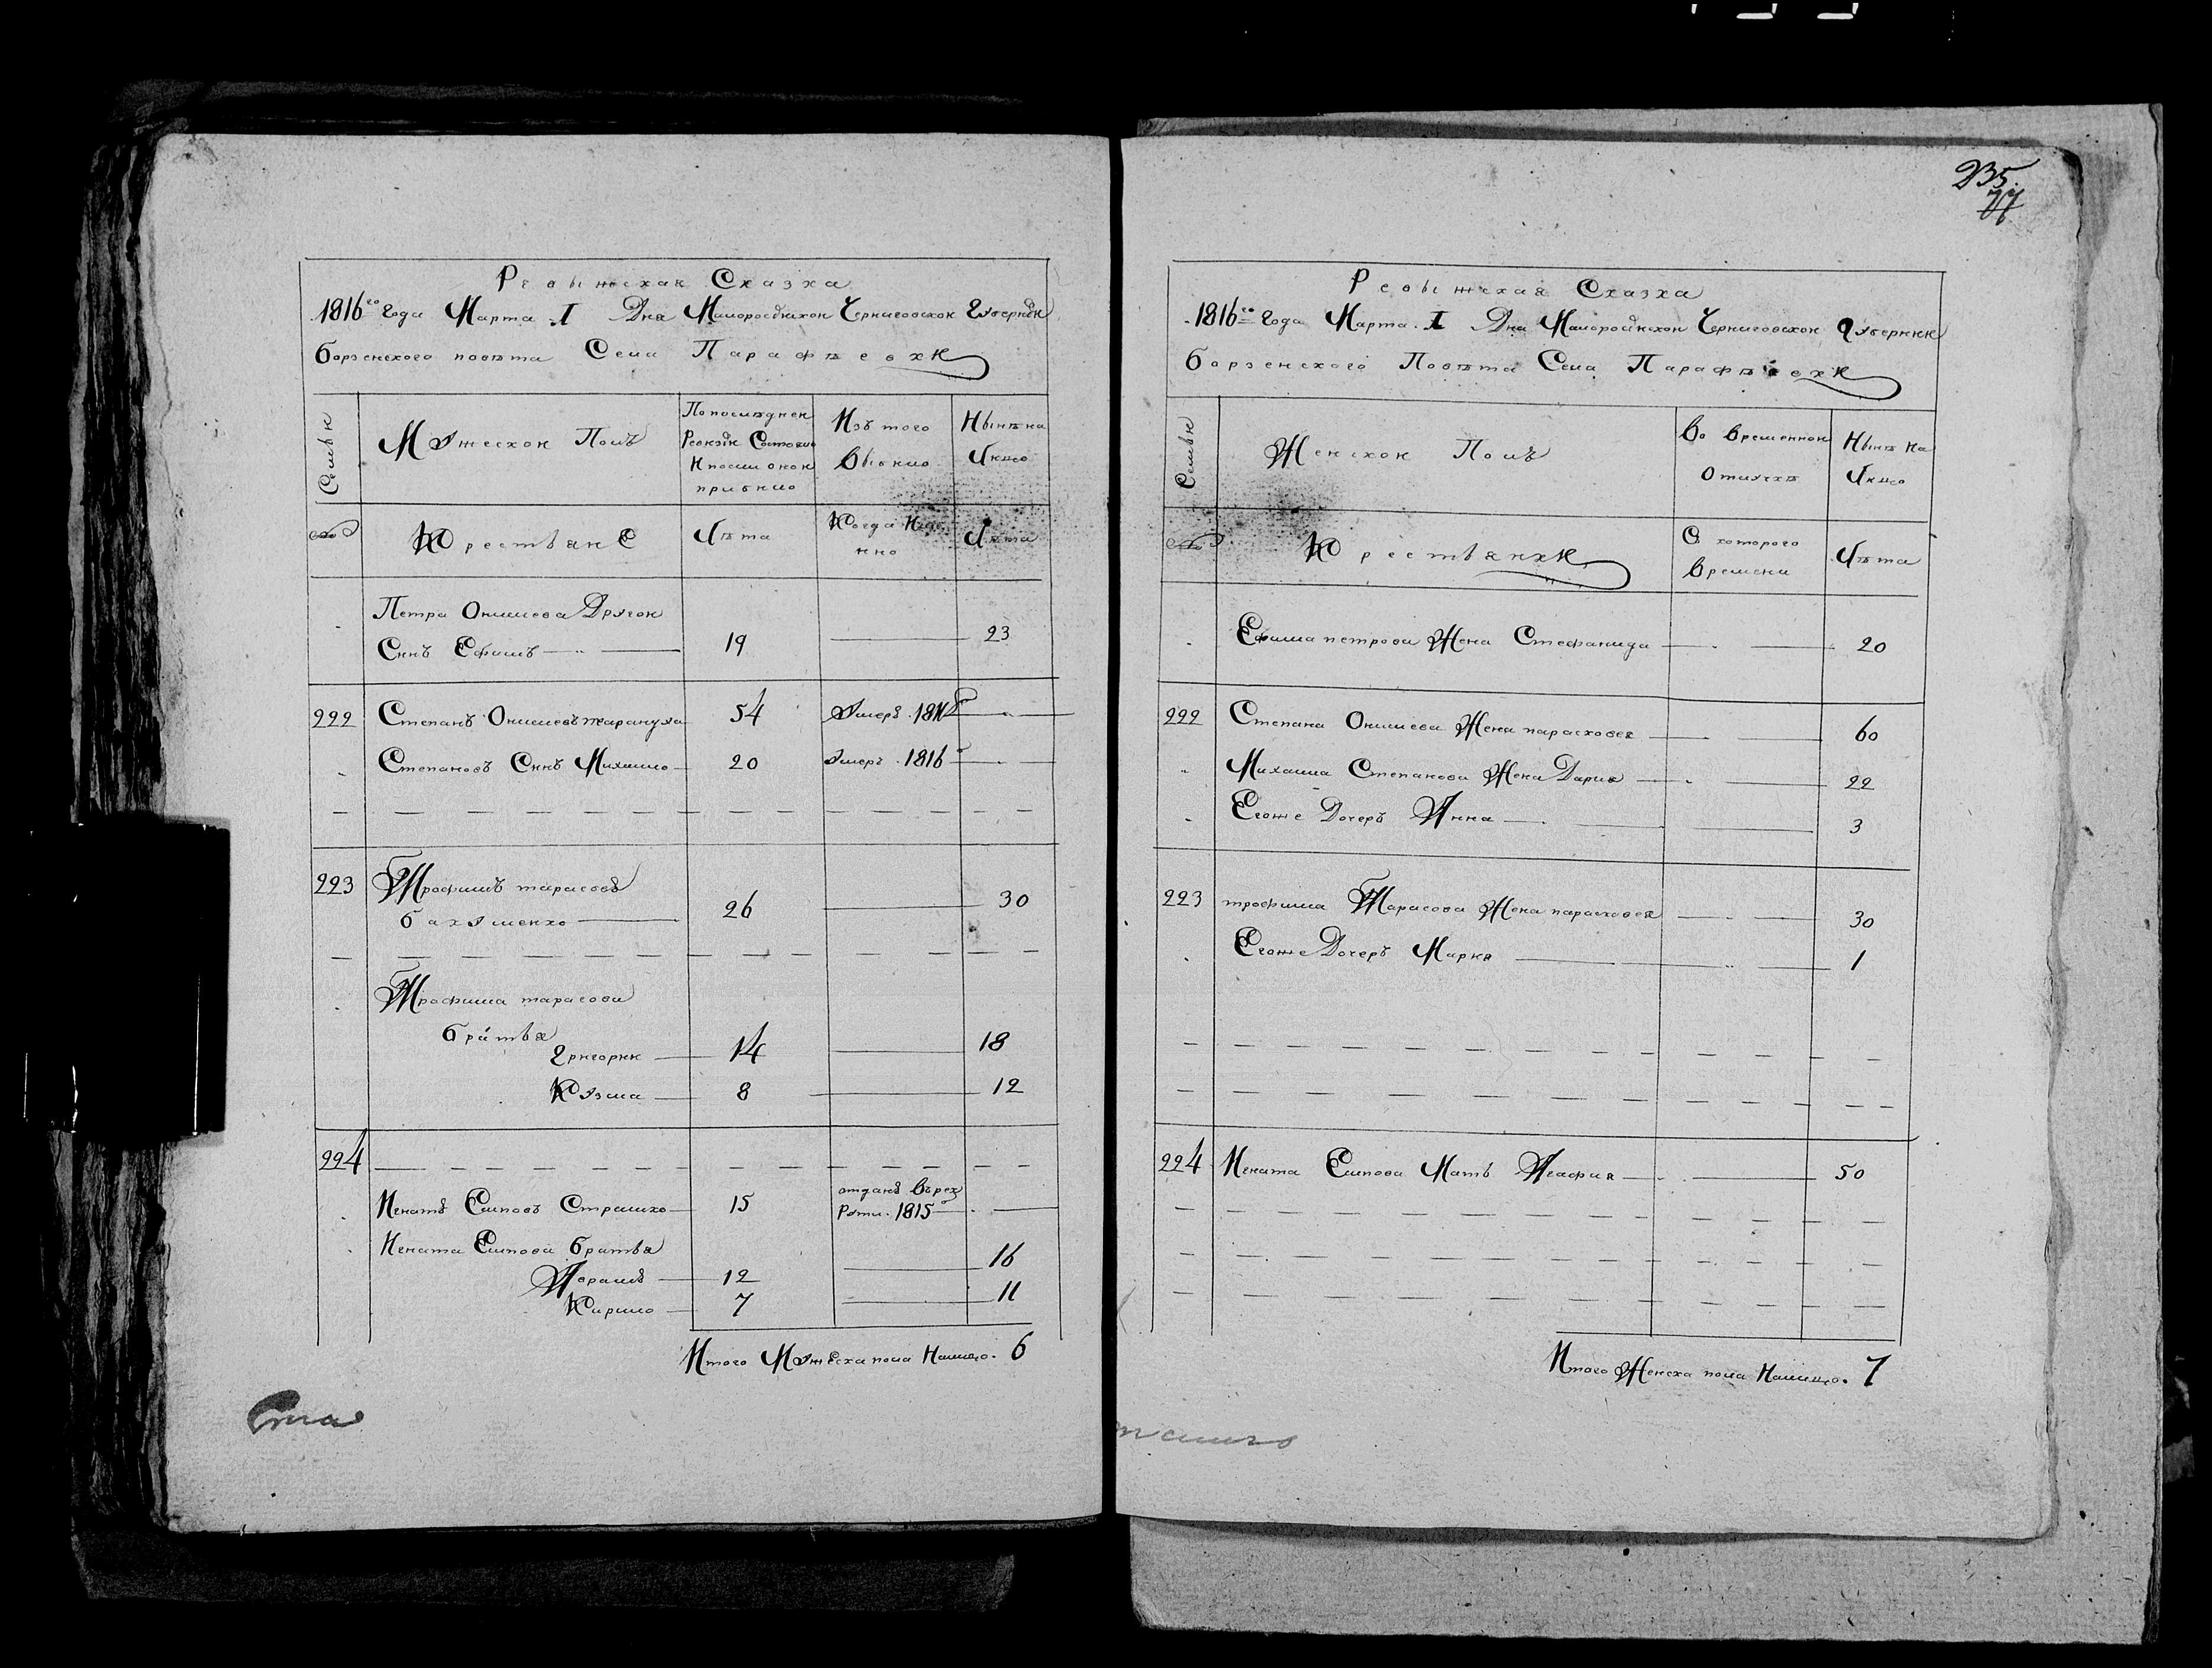 Ревыжская Сказка
1816го Года Марта I Дня Малоросійской Черниговской Губерніи
борзенского повѣта Села Парафѣевки
Семьи
Мужеской Полъ
По послѣдней
Ревизіи Состояло
И после оной
прибыло
Изъ того
Выбыло
Нынѣ на
Лицо
№
Крестьяне
Лѣта
Когда И
нно
Лѣта
Петра Онисиева Другой
Снъ Ефимъ 19 23
222 Степанъ Онисиевъ тарануха 54 Умеръ
Степановъ Снъ Михаило 20 Умеръ 1816
223 Трофимъ тарасовъ
бахуменко 26 30
Трофима тарасова
братья
Григорий 14 18
Кузма 8 12
224
Игнатъ Еsиповъ Страшко 15 отданъ Въ рек
Рути 1815
Игната Есипова братья
Абрамъ 12 16
Кирило 7 11
Итого Мужеска пола Налицо. 6
235
77
Ревыжская Сказка
1816го Года Марта I Дня Малоросійской Черниговской Губернии
борзенского Повѣта Села Парафѣевки
Семьи
Женской Полъ
Во Временной
Отлучкѣ
Нынѣ На
Лицо
№
Крестьянки
С которого
Времени
Лѣта
Ефима петрова Жена Стефанида 20
222 Степана Онисиева Жена парасковея 60
Михаила Степанова Жена Дария 22
Егоже Дочеръ Анна 3
223 трофима Тарасова Жена парасковея 30
Егоже Дочеръ Мария 1
224 Игната Есипова Мать Агафия 50
Итого Женска пола Налицо. 7